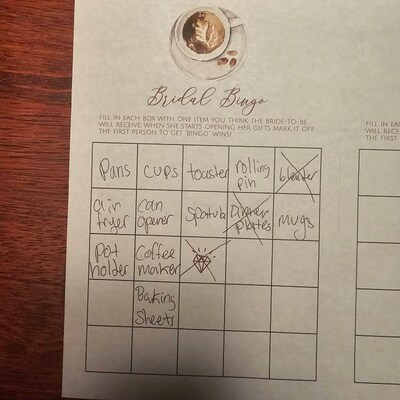 Bridal Bingo
FILL IN EACH BOX WITH ONE ITEM YOU THINK THE BRIDE-TO-BE
WILL RECEIVE. WHEN SHE STARTS OPENING HER GIFTS MARK IT OFF
THE FIRST PERSON TO GET 'BINGO' WINS!
Pans cups toaster rolling pin blender
air fryer can opener spatula Dinner plates mugs
pot holder Coffee maker
Baking Sheets
FILL IN EA
WILL RECE
THE FIRST